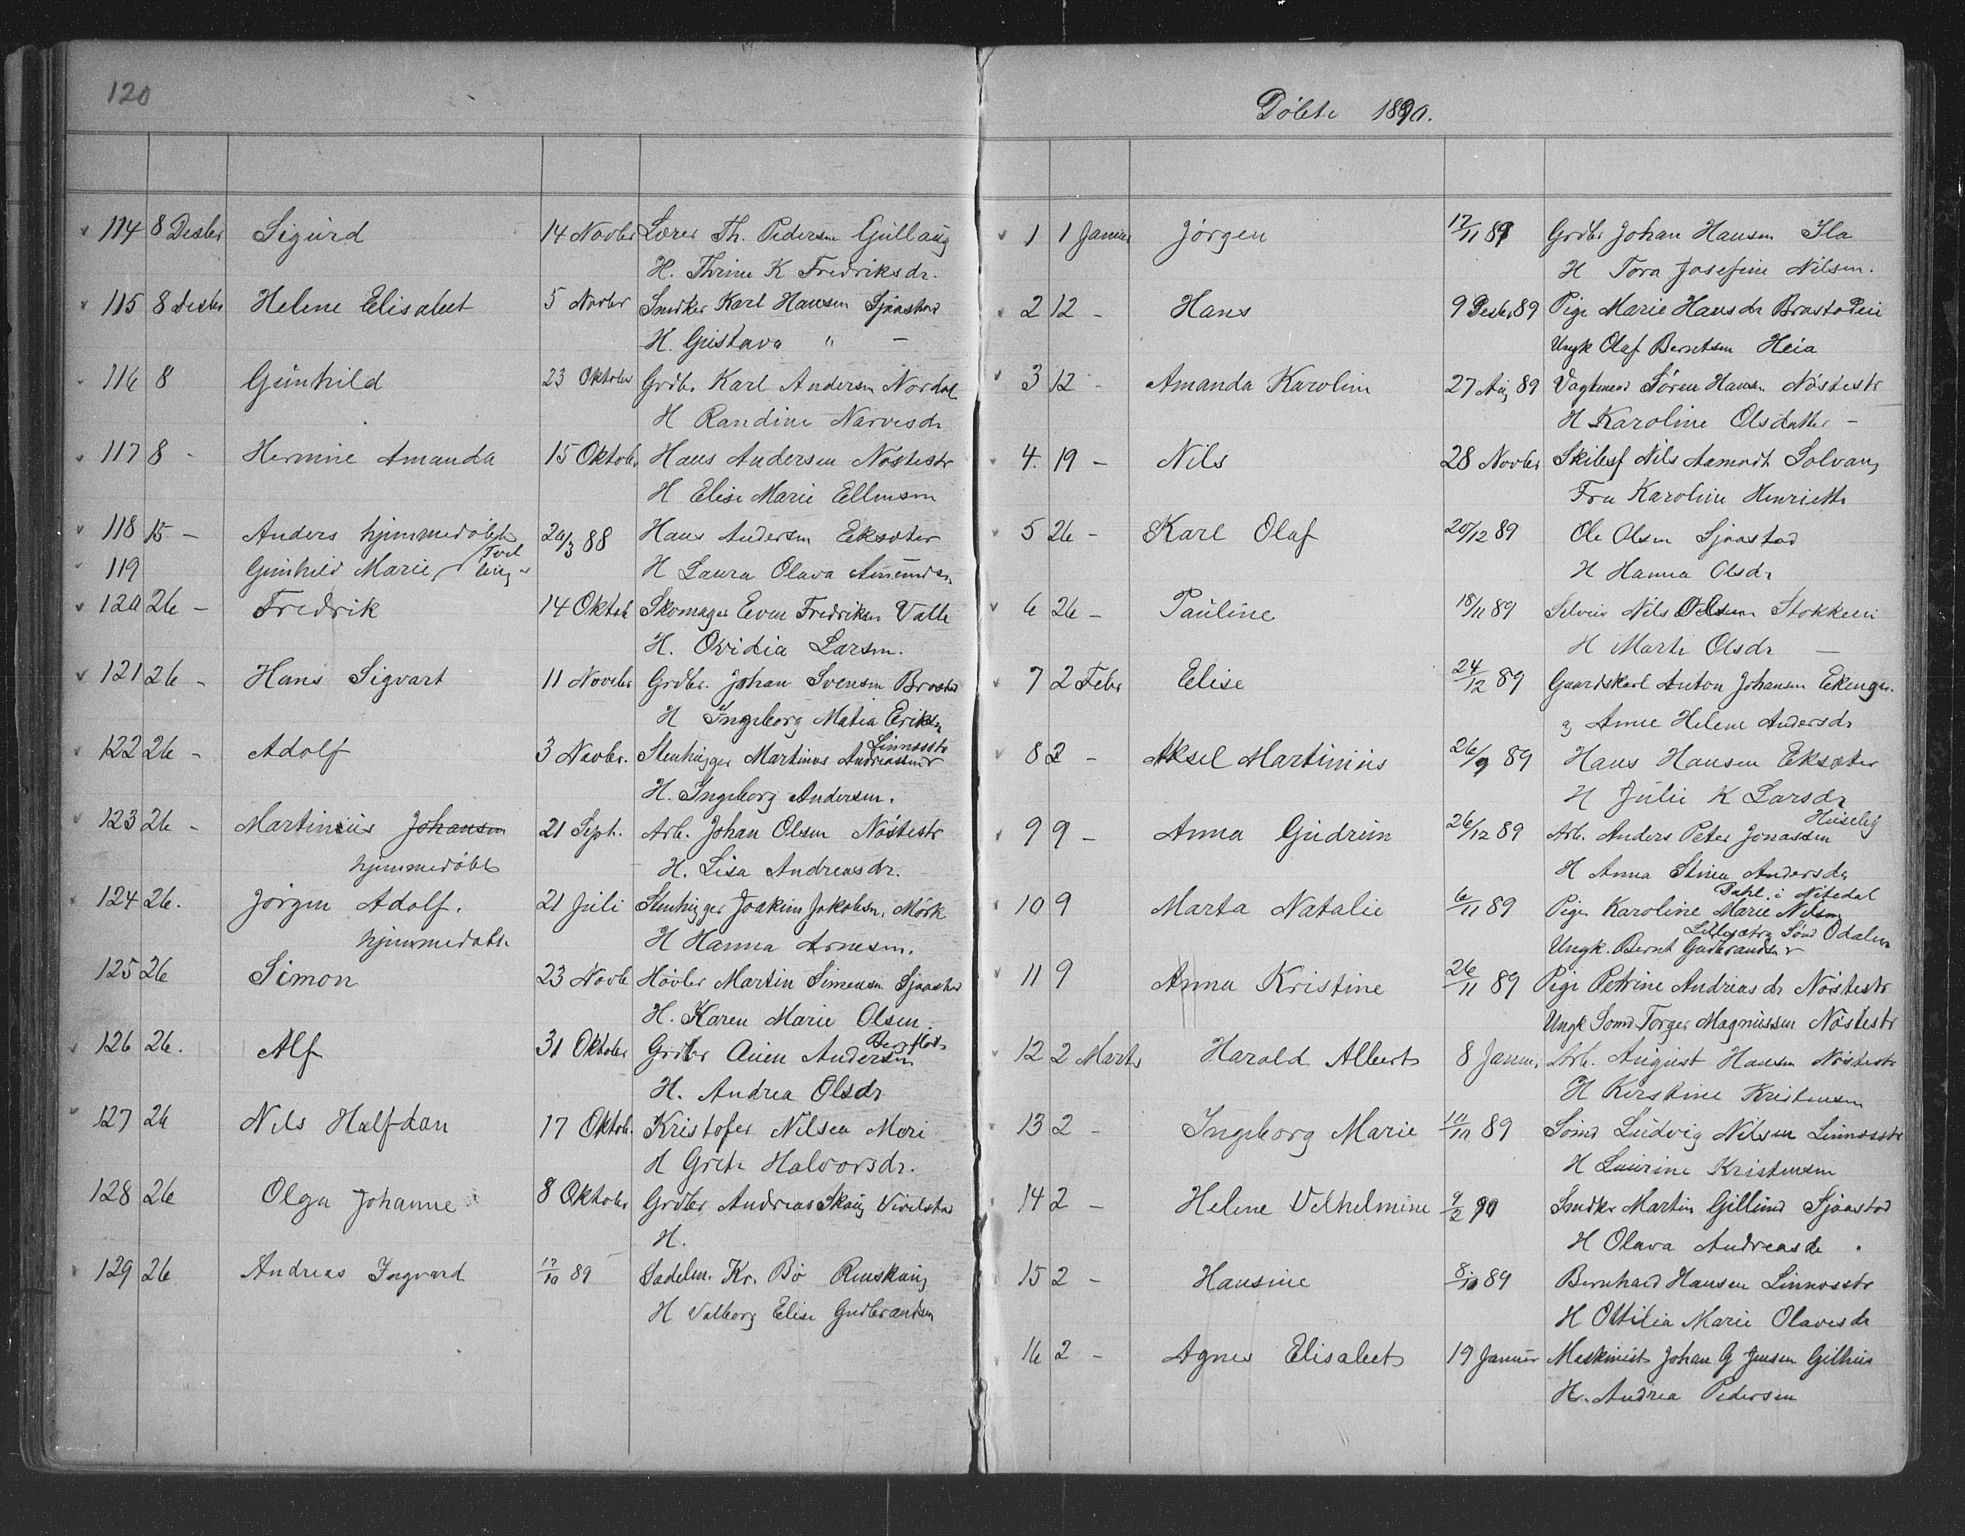 120
114 8 Desbr Sigurd 14 Novbr Lærer Th. Pedersen Gullaug
H. Thrine K Fredriksdr.
115 8 Desbr Helene Elisabet 5 Novbr Smdker Karl Hansen Sjaastad
H. Gustava " —
116 8 Gunhild 23 Oktober Grdbr Karl Andersen Nordal
H Randine Narvesdr
117 8 - Hermine Amanda 15 Oktobr Hans Andersen Nøstestr
H Elise Marie Ellensen
118 15 - Anders hjemmedøbt 20/3 88 Hans Andersen Eksæter
119 Gunhild Marie, Tvillinge H Laura Olava
120 26 - Fredrik 14 Oktob Skomager Even Fredriksen Valle
H. Ovidia Larsen.
121 26 - Hans Sigvart 11 Novebr Grdbr. Johan Svensen Brastad
H Ingeborg Matea Eriksen
122 26 - Adolf 3 Novbr. Stenhugger Martinus Andreassen Linnesstr
H. Ingeborg Andersen.
123 26 - Martinius Johansen 21 Sept. Arb. Johan Olsen Nøstestr
hjemmedøbt H. Lisa Andreasdr.
124 26. Jørgen Adolf. 21 Juli Stenhugger Joakim Jakobsen, Mørk
hjemmedøbt H Hanna Arnesen.
125 26 Simon 23 Novb Høvler Martin Simensen Sjaastad
H. Karen Marie Olsen.
126 26. Alf 31 Oktober Grdbr Auen Andersen
H. Andrea Olsdr
127 26 Nils Halfdan 17 Oktob. Kristofer Nilsen Meri
H Grete Halvorsdr.
128 26 Olga Johanne 8 Oktober Grdbr Andreas Skaug Vivelstad
H.
129 26 Andreas Ingvard 17/10 89 Sadelm. Kr. Bø Renskaug
H Valborg Elise Gudbrandsen
Døbte 1890.
1 1 Januar Jørgen 17/11 89 Grdbr Johan Hansen Ila
H Tora Josefine Nilsen.
2 12 - Hans 9 Desbr 89 Pige Marie Hansdr Brastadeie
Ungk Olaf Berntsen Heia
3 12 - Amanda Karoline 27 Aug 89 Vagtmand Søren Hansen Nøstestr
H Karoline Olsdatter -
4. 19 - Nils 28 Novbr Skibsf Nils Aamodt Solvang
Fru Karoline Henriette
5 26 - Karl Olaf 20/12 89 Ole Olsen Sjaastad
H Hanna Olsdr
6 26 - Pauline 18/11 89 Selveier Nils Olsen Stokkeri
H Marte Olsdr —
7 2 Febr Elise 24/12 89 Gaardskarl Anton Johansen Ekenger.
og Anne Helene Andersdr
8 2 - Aksel Martinius 26/9 89 Hans Hansen Eksæter
H Julie K Larsdr
9 9 - Anna Gudrun 26/12 89 Arb. Anders Peter Jonassen Huseby
H Anna Stina Andersdr
10 9 Marta Natalie 6/11 89 Pige Karoline Marie Nilsen Dahl i Nitedal
Ungk. Bernt Gudbrandsen Lillesætra Sønd Odalen
11 9 Anna Kristine 26/11 89 Pige Petrine Andreasdr Nøstestr
Ungk Sømd Torger Magnussen Nøstestr
12 2 Marts Harald Albert 8 Januar Arb. August Hansen Nøstestr
H Kirstine Kristensen
13 2 - Ingeborg Marie 10/10 89 Sømd Ludvig Nilsen Linnesstr
H Laurine Kristensen
14 2 - Helene Vilhelmine 9/2 90 Smdkr Martin Gillund Sjaastad
H Olava Andreasdr .
15 2 - Hansine 8/10 89 Bernhard Hansen Linnesstr
H Ottilia Marie Olavesdr
16 2 - Agnes Elisabet 19 Januar Maskinist Johan G Jensen Gilhus
H. Andrea Pedersen